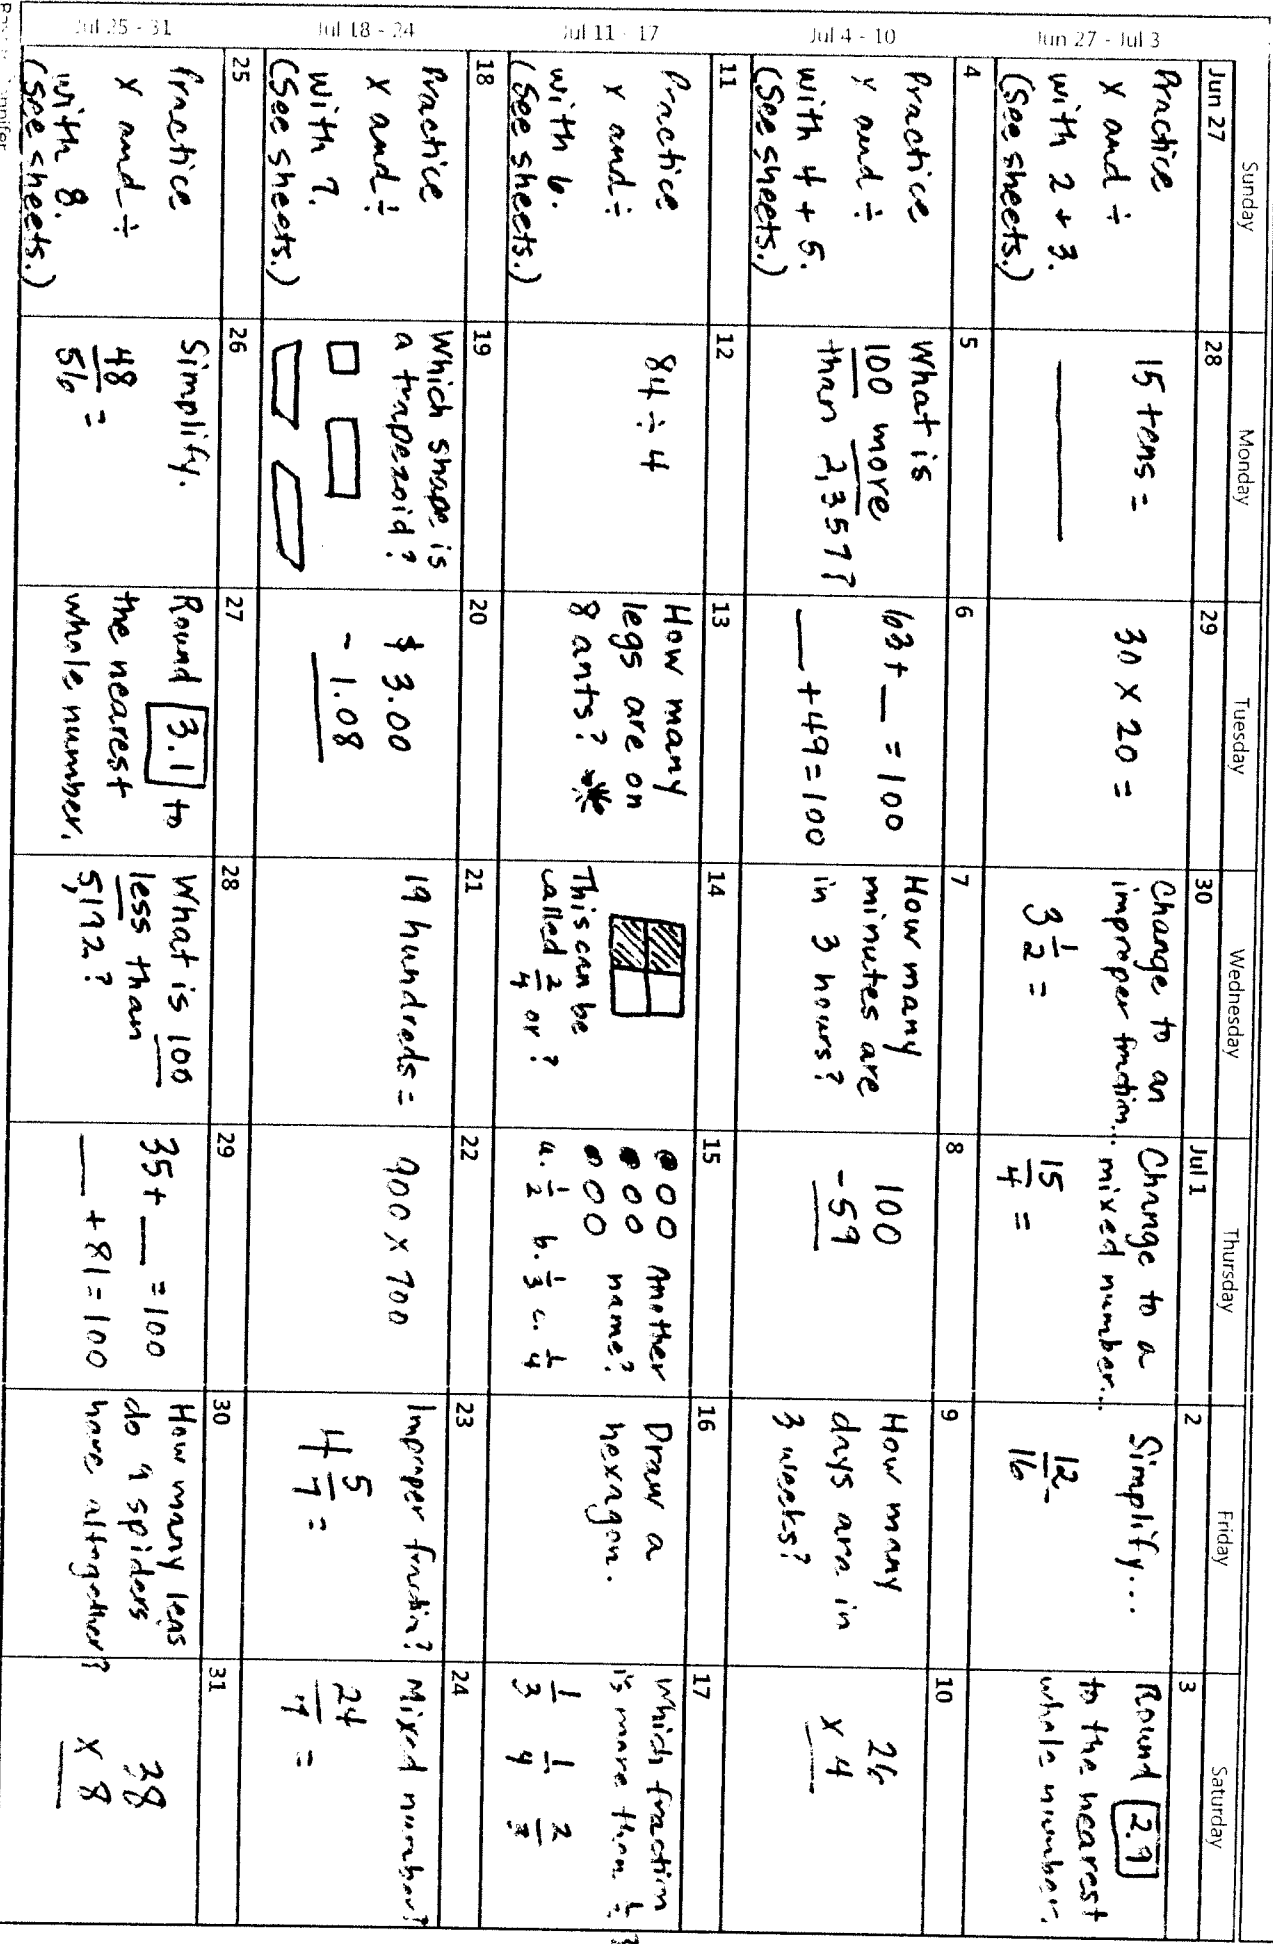 Sunday Monday Tuesday Wednesday Thursday Friday Saturday
Jun 27 - Jul 3
Jun 27
Practice
x and ÷
with 2 + 3.
(See sheets.)
28
15 tens =
29
30 x 20 =
30
Change to an
improper fraction...
3 1/2 =
Jul 1
Change to a
mixed number...
15/4 =
2
Simplify...
12/16
3
Round 2.9
to the nearest
whole number.
Jul 4 - 10
4
Practice
x and ÷
with 4 + 5.
(See sheets.)
5
What is
100 more
than 2,357?
6
63 + __ = 100
__ + 49 = 100
7
How many
minutes are
in 3 hours?
8
100
- 59
9
How many
days are in
3 weeks?
10
26
x 4
Jul 11 - 17
11
Practice
x and ÷
with 6.
(See sheets.)
12
84 ÷ 4
13
How many
legs are on
8 ants?
14
This can be
called 2/4 or ?
15
Another
name?
a. 1/2 b. 1/3 c. 1/4
16
Draw a
hexagon.
17
Which fraction
is more than
1/3 1/4
Jul 18 - 24
18
Practice
x and ÷
with 7.
(See sheets.)
19
Which shape is
a trapezoid?
20
$ 3.00
- 1.08
21
19 hundreds =
22
900 x 700
23
Improper fraction?
4 5/7 =
24
Mixed number?
=
Jul 25 - 31
25
Practice
x and ÷
with 8.
(See sheets.)
26
Simplify.
48/56 =
27
Round 3.1 to
the nearest
whole number.
28
What is 100
less than
5,192?
29
35 + __ = 100
__ + 81 = 100
30
How many legs
do 9 spiders
have altogether?
31
38
x 8